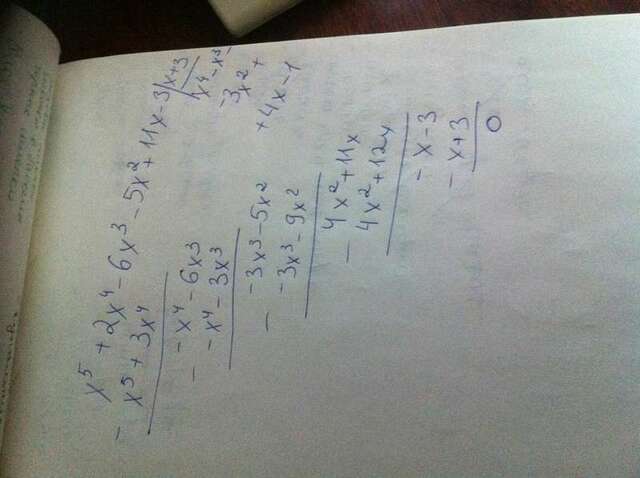 x⁵ + 2x⁴ - 6x³ - 5x² + 11x - 3 | x+3
- x⁵ + 3x⁴
x⁴ - x³ -
- 3x² +
+ 4x - 1
- -x⁴ - 6x³
-x⁴ - 3x³
- -3x³ - 5x²
-3x³ - 9x²
- 4x² + 11x
4x² + 12x
- x - 3
- x + 3
0